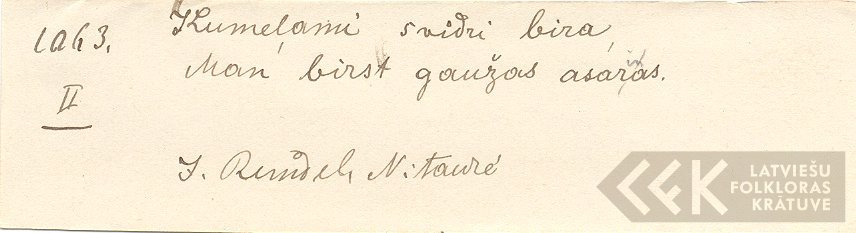 1063.
Kumeļami svidri bira,
Man birst gaužas asaras.
II
J. Rendel, Nitaurē
LATVIEŠU
FOLKLORAS
KRĀTUVE